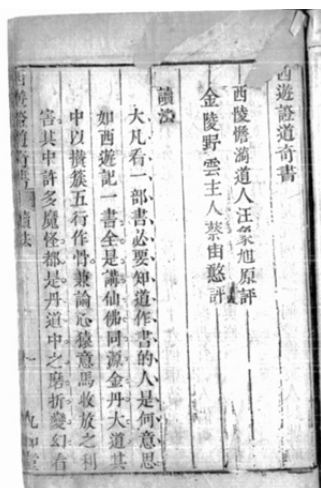 西遊證道奇書
西陵憺漪道人汪象旭原評
金陵野雲主人蔡由憨評
讀法
大凡看一部書必要知道作書的人是何意思
如西遊記一書全是講仙佛同源金丹大道其
中以攢簇五行作骨兼論心猿意馬收放之利
害其中許多魔怪都是丹道中之磨折變幻看
西遊證道奇書 讀法 一 九如堂